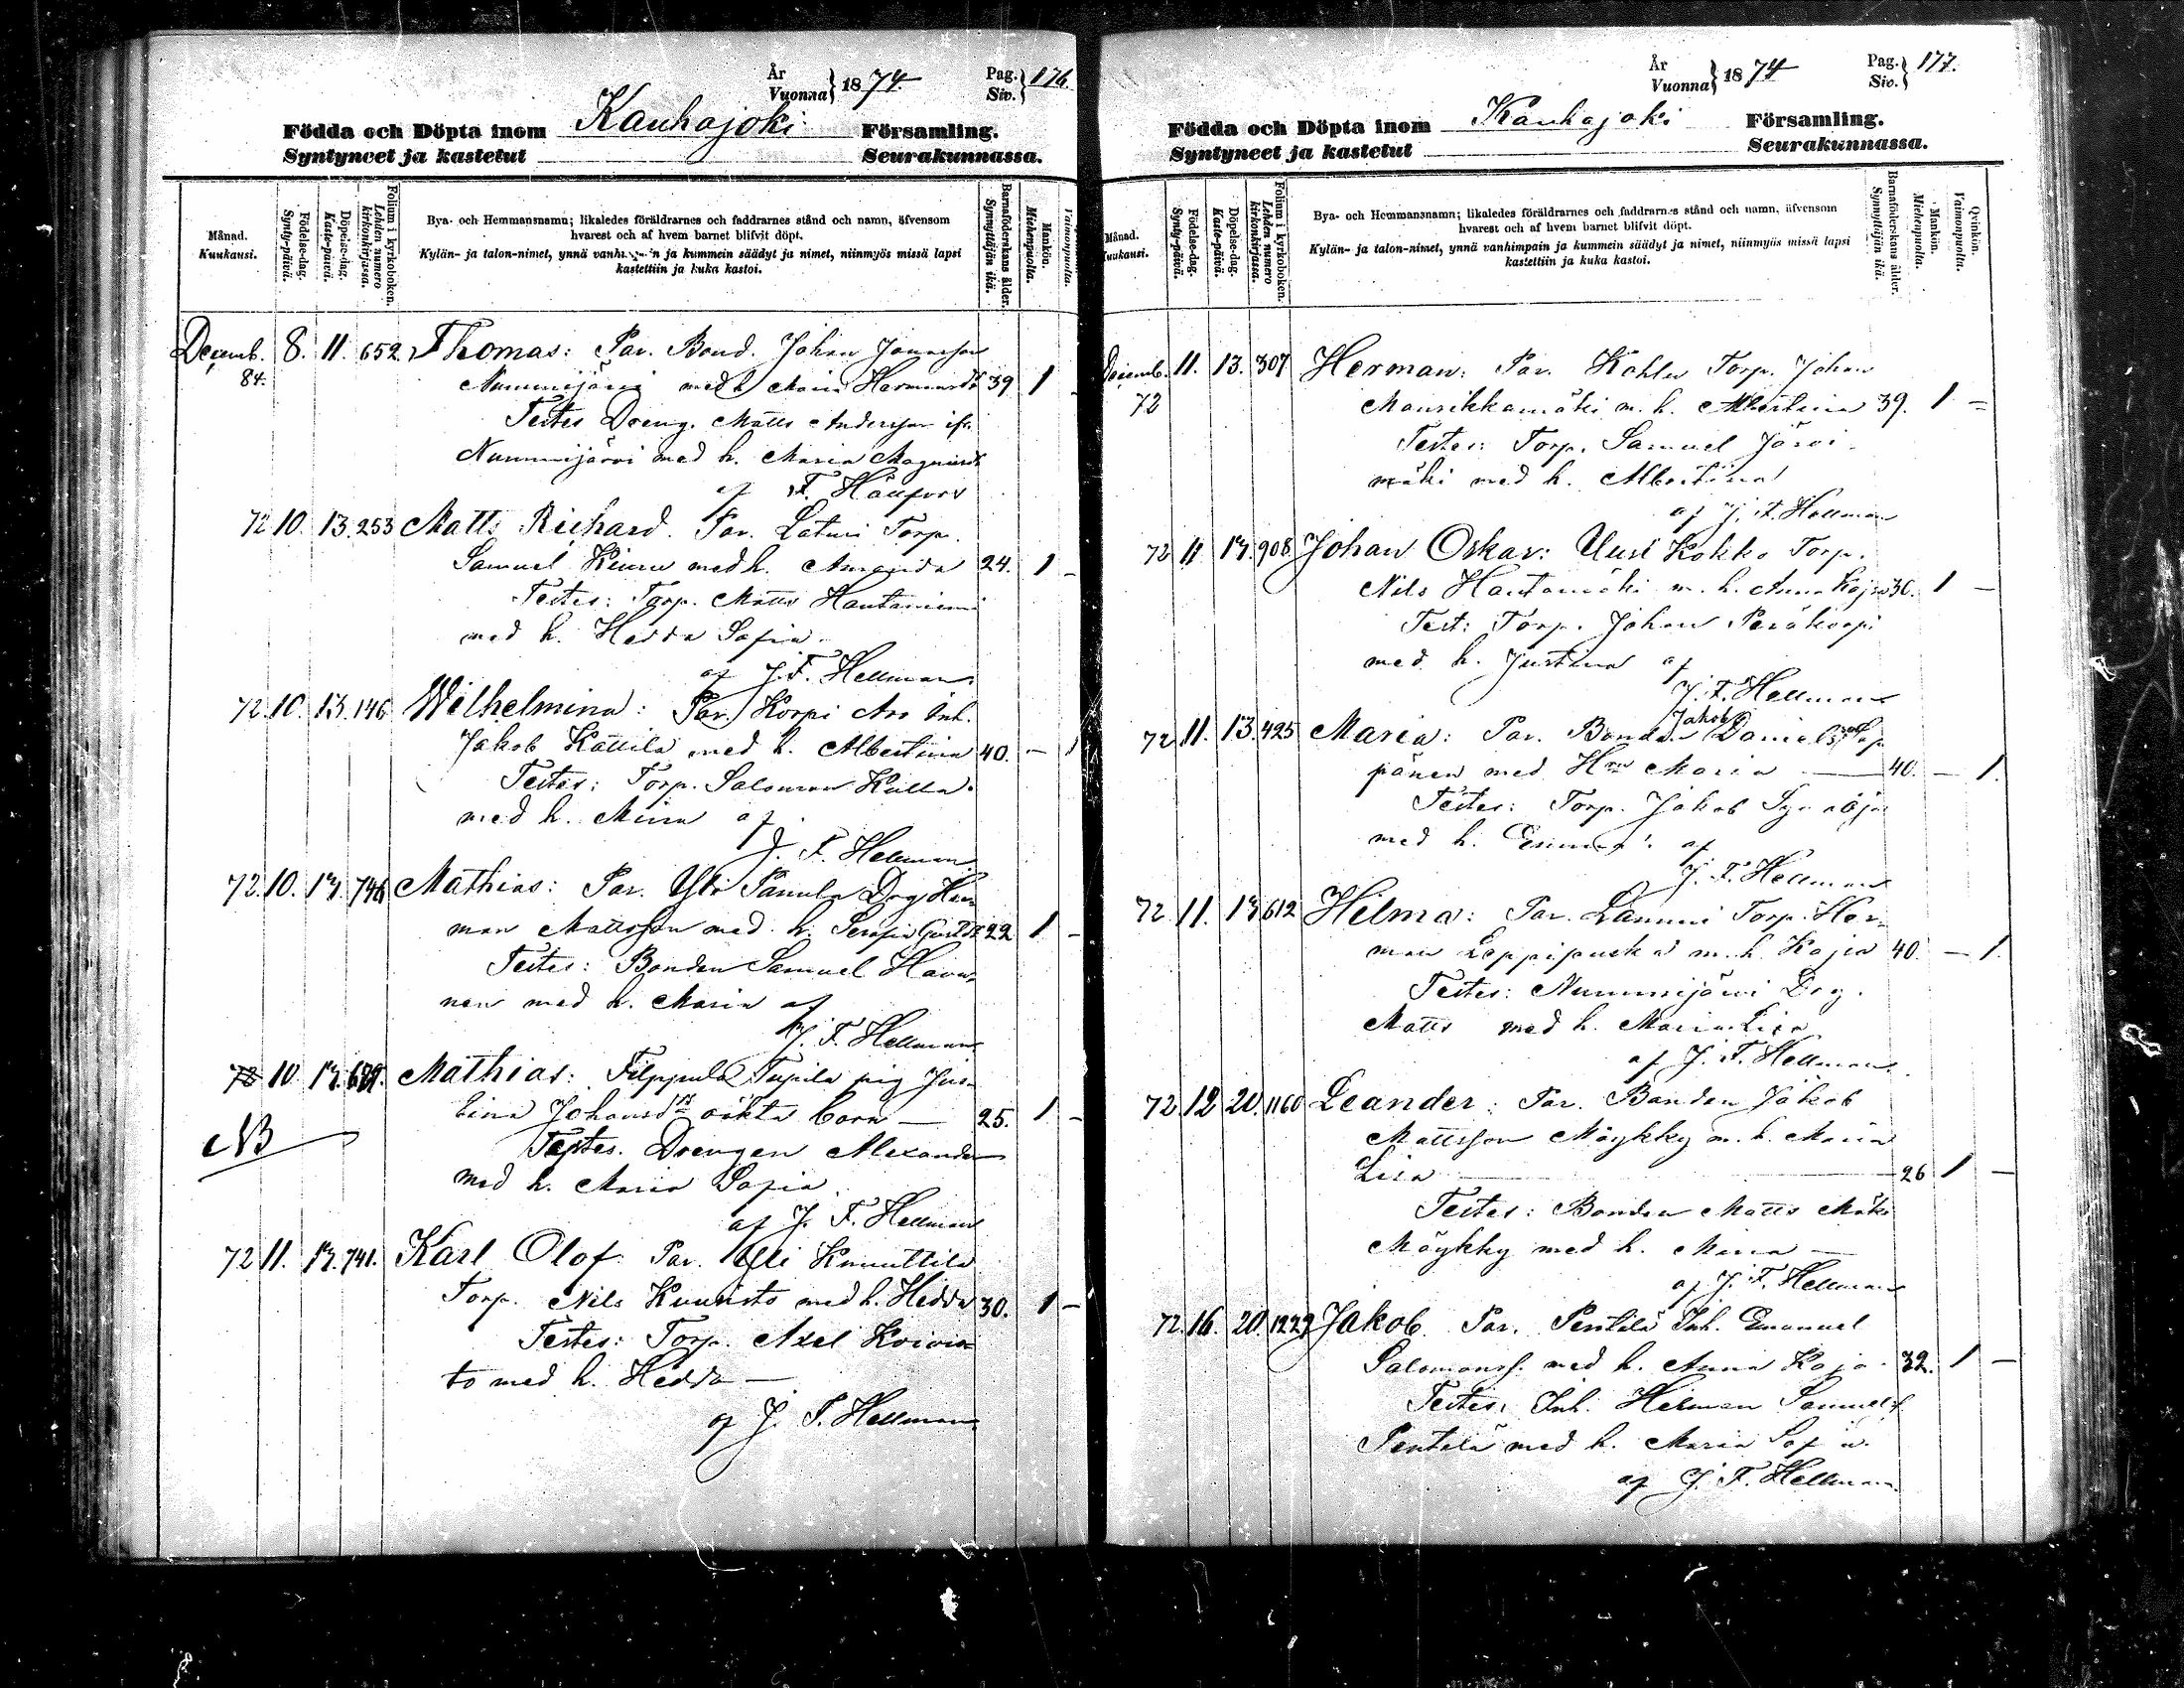 År
Vuonna } 1874.
Pag.
Siv. } 176
Födda och Döpta inom Kauhajoki Församling.
Syntyneet ja kastetut Seurakunnassa.
Månad.
Kuukausi.
Födelse-dag.
Synty-päivä.
Döpelse-dag.
Kaste-päivä.
Folium i kyrkoboken.
Lehden numero kirkonkirjassa.
Bya- och Hemmansnamn; likaledes föräldrarnes och faddrarnes stånd och namn, äfvensom
hvarest och af hvem barnet blifvit döpt.
Kylän- ja talon-nimet, ynnä ja kummein säädyt ja nimet, niinmyös missä lapsi
kastettiin ja kuka kastoi.
Barnaföderskans ålder.
Synnyttäjän ikä.
Mankön.
Miehenpuolta.
Vaimonpuolta.
Decemb. 8. 11. 652 Thomas: Par. Bond. Johan
84. Nummijärvi med h Maria 39 1
Testes Dreng. Matts Andersson
Nummijärvi med h. Maria
af F. Hällfors
72 10. 13. 253 Matts Richard. Par. Torp.
Samuel med h. Amanda 24. 1 -
Testes: Torp. Matts
med h. Hedda Sofia.
af J. F. Hellman
72. 10. 13. 146 Wilhelmina: Par. Korpi Aro Inh.
Jakob Kattila med h. Albertina 40. - 1
Testes: Torp. Salomon
med h. Mina af
J. F. Hellman
72. 10. 13. 746 Mathias: Par. Yli Panula Drg Her
man Mattsson med h. Serafia 22 1 -
Testes: Bonden Samuel
nen med h. Maria af
J. F. Hellman
72 10 13. Mathias: Filppula pig Jus-
tina oäkta barn — 25. 1 -
NB
Testes. Drengen Alexander
med h. Maria Sofia.
af J. F. Hellman
72 11. 13. 741. Karl Olof. Par. Yli Knuuttila
Torp. Nils Kuusisto med h. Hedda 30. 1 -
Testes: Torp. Axel Koivis
to med h. Hedda —
af J. F. Hellman
År
Vuonna } 1874
Pag.
Siv. } 177.
Födda och Döpta inom Kauhajoki Församling.
Syntyneet ja kastetut Seurakunnassa.
Månad.
Kuukausi.
Födelse-dag.
Synty-päivä.
Döpelse-dag.
Kaste-päivä.
Folium i kyrkoboken.
Lehden numero kirkonkirjassa.
Bya- och Hemmansnamn; likaledes föräldrarnes och faddrarnes stånd och namn, äfvensom
hvarest och af hvem barnet blifvit döpt.
Kylän- ja talon-nimet, ynnä vanhimpain ja kummein säädyt ja nimet, niinmyös missä lapsi
kastettiin ja kuka kastoi.
Barnaföderskans ålder.
Synnyttäjän ikä.
Mankön.
Miehenpuolta.
Qvinkön.
Vaimonpuolta.
Decemb. 11. 13. 307 Herman: Par. Torp. Johan
72 Mansikkamäki m. h. Albertina 39. 1 -
Testes: Torp. Samuel Järvi-
mäki med h. Albertina
af J. F. Hellman
72 11 13. 908 Johan Oskar: Uusi Kokko Torp.
Nils Hautamäki m. h. Anna Kajsa 30. 1 -
Test: Torp. Johan Peräkorpi
med h. Justina af
J. F. Hellman
72 11. 13. 425 Maria: Par. Bonden Jakob Danielsson Sep
pänen med Hru Maria — 40. - 1.
Testes: Torp. Jakob
med h. af
J. F. Hellman
72 11. 13 612 Hilma: Par. Lammi Torp. Her-
man m. h. Kajsa 40. - 1.
Testes: Nummijärvi Drg.
Matts med h. Maria Lisa
af J. F. Hellman.
72. 12 20. 1160 Leander: Par. Bonden Jakob
Mattsson Möykky m. h. Maria
Lisa — 26 1 -
Testes: Bonden Matts
Möykky med h. Maria —
af J. F. Hellman
72. 16. 20. 1229 Jakob. Par. Pentilä Inh. Emanuel
Salomonss. med h. Anna Kajsa. 32. 1 -
Testes: Inh. Herman Samuelss.
Pentilä med h. Maria Sofia.
af J. F. Hellman